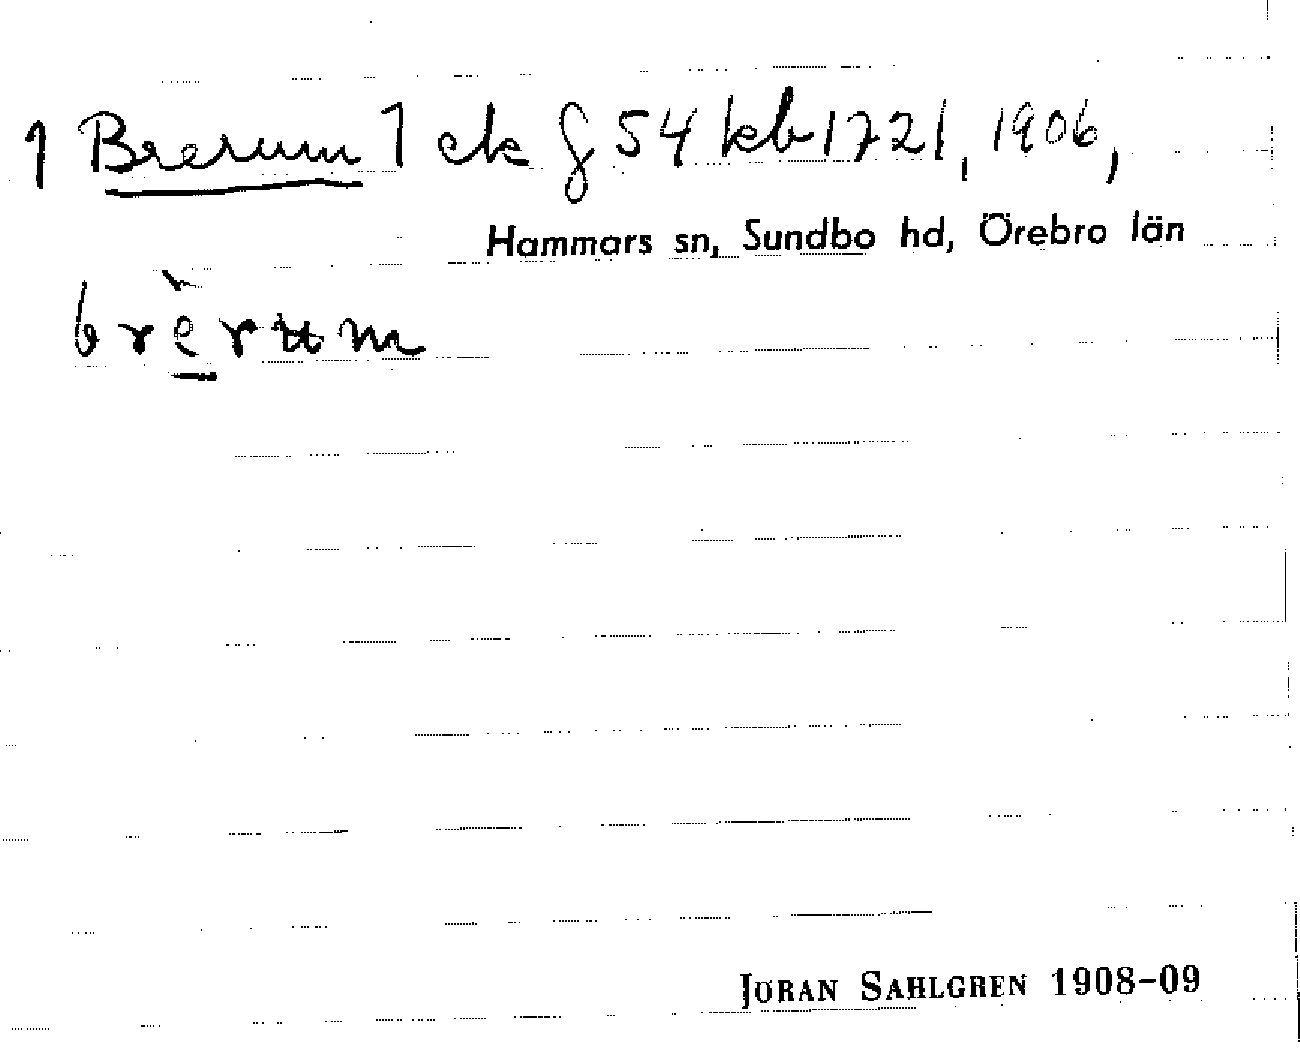 1 Brerum 1 ek f 54 kb 1721, 1906,
Hammars sn, Sundbo hd, Örebro län
brèrum
JÖRAN SAHLGREN 1908-09